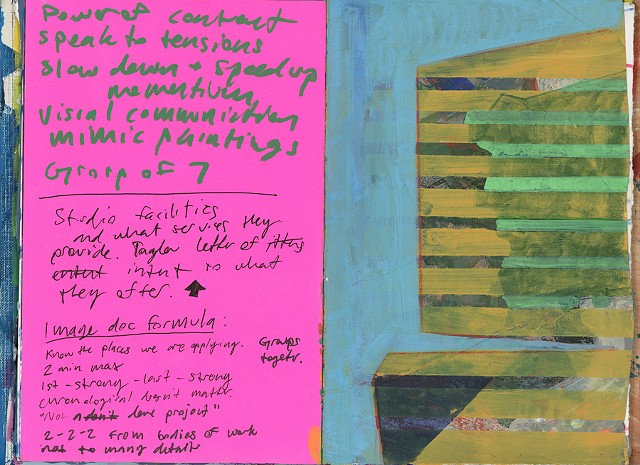 Power of contrast
speak to tensions
Slow down + Speed up
momentum
Visual communication
mimic paintings
Group of 7
Studio facilities
and what services they
provide. Taylor letter of
intent to what
they offer.
Image doc formula:
Know the places we are applying.
Groups
togetr.
2 min max
1st - strong - last - strong
chronological doesn't matter.
"Not a done project"
2-2-2 from bodies of work
not to many details